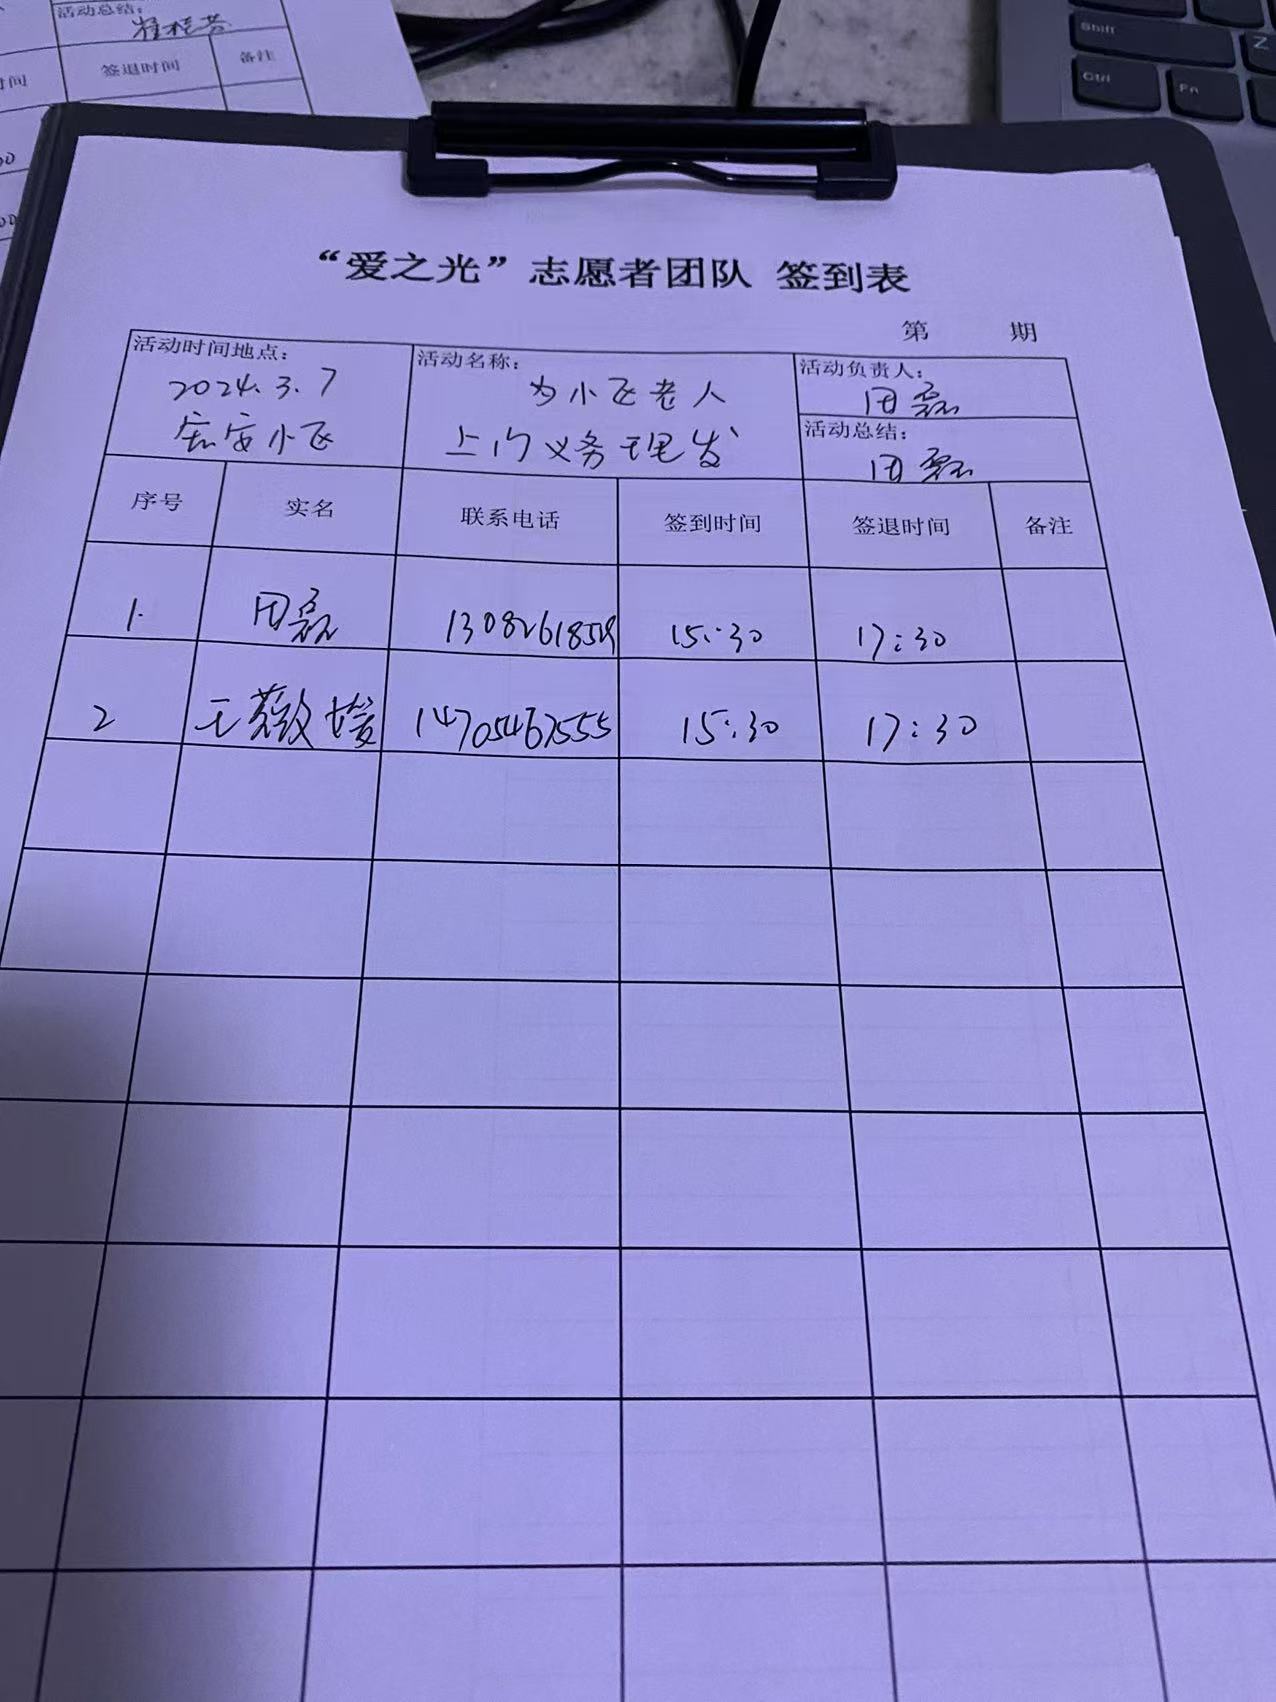 活动总结:
签退时间
备注
"爱之光"志愿者团队 签到表
第 期
活动时间地点:
2024.3.7
宏安小区
活动名称:
为小区老人
上门义务理发
活动负责人:
田磊
活动总结:
田磊
序号 实名 联系电话 签到时间 签退时间 备注
1. 田磊 15:30 17:30
2 王薇媛 14705467555 15:30 17:30
Shift
Z
Ctrl
Fn